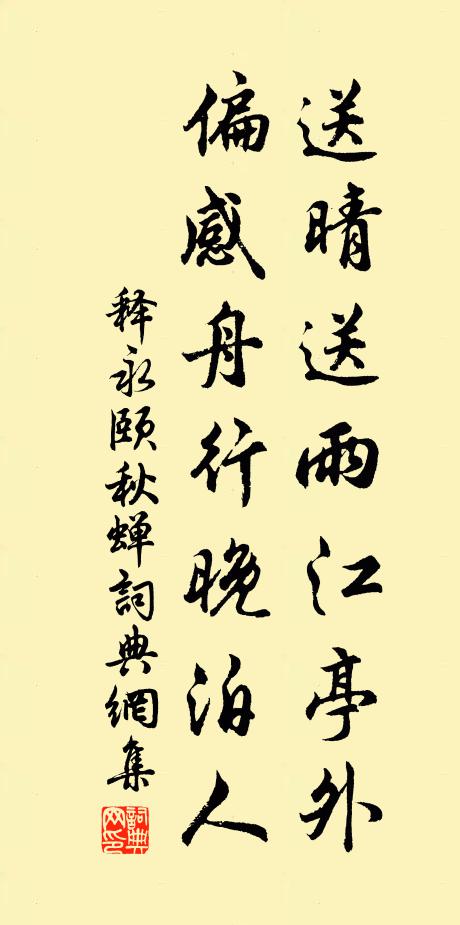 送晴送雨江亭外
偏感舟行晚泊人
释永颐秋蝉詞典網集
詞典网印